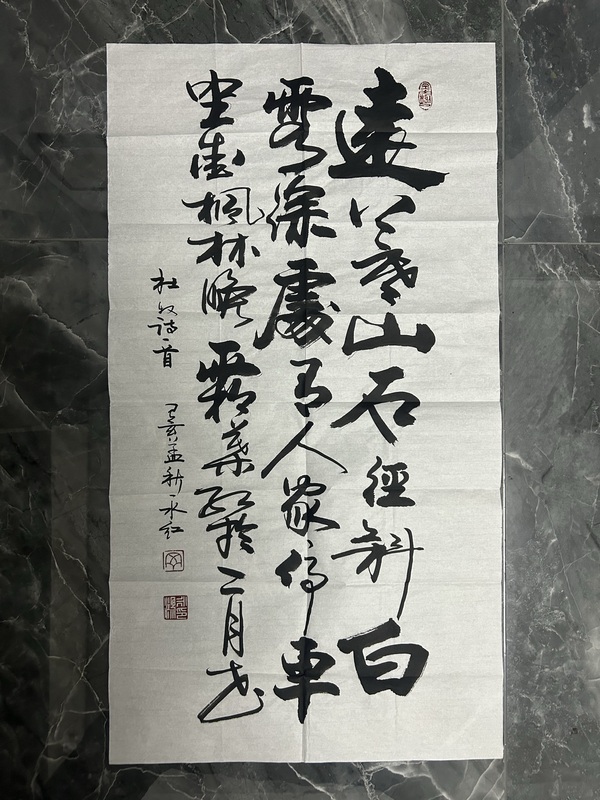 遠上寒山石徑斜白
雲深處有人家停車
坐愛楓林晚霜葉紅於二月花
杜牧詩一首 孟 永红